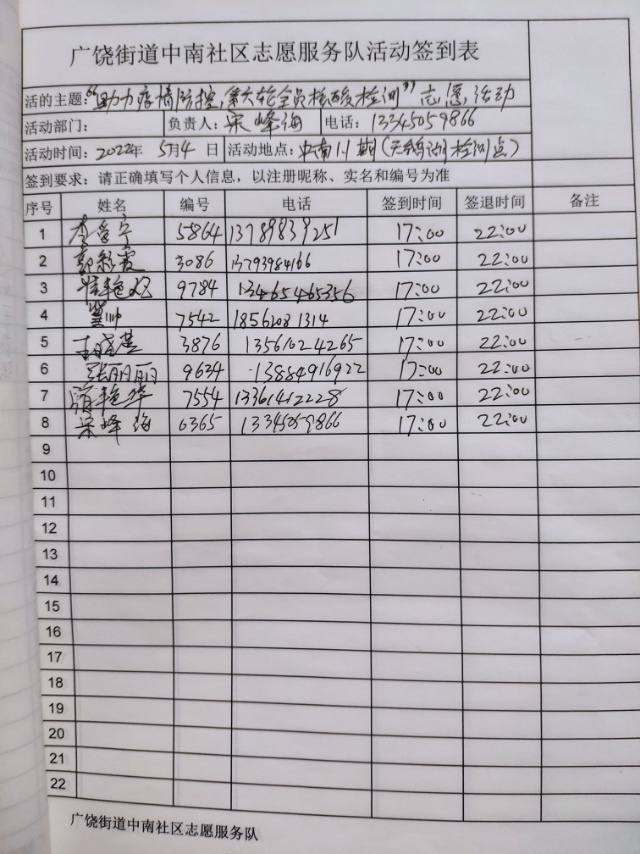 广饶街道中南社区志愿服务队活动签到表
活的主题:“助力疫情防控,第六轮全员核酸检测”志愿活动
活动部门: 负责人:宋峰海 电话:13345059866
活动时间:2022年 5月4日 活动地点:中南1.1期(天鹅湖检测点)
签到要求:请正确填写个人信息,以注册昵称、实名和编号为准
序号 姓名 编号 电话 签到时间 签退时间 备注
1 5864 13789839251 17:00 22:00
2 郭彩霞 3086 13793984166 17:00 22:00
3 9784 13465465356 17:00 22:00
4 7542 18562081314 17:00 22:00
5 3876 13561024265 17:00 22:00
6 张丽丽 9634 13884916922 17:00 22:00
7 7554 13361412228 17:00 22:00
8 宋峰海 0365 13345059866 17:00 22:00
9
10
11
12
13
14
15
16
17
18
19
20
21
22
广饶街道中南社区志愿服务队